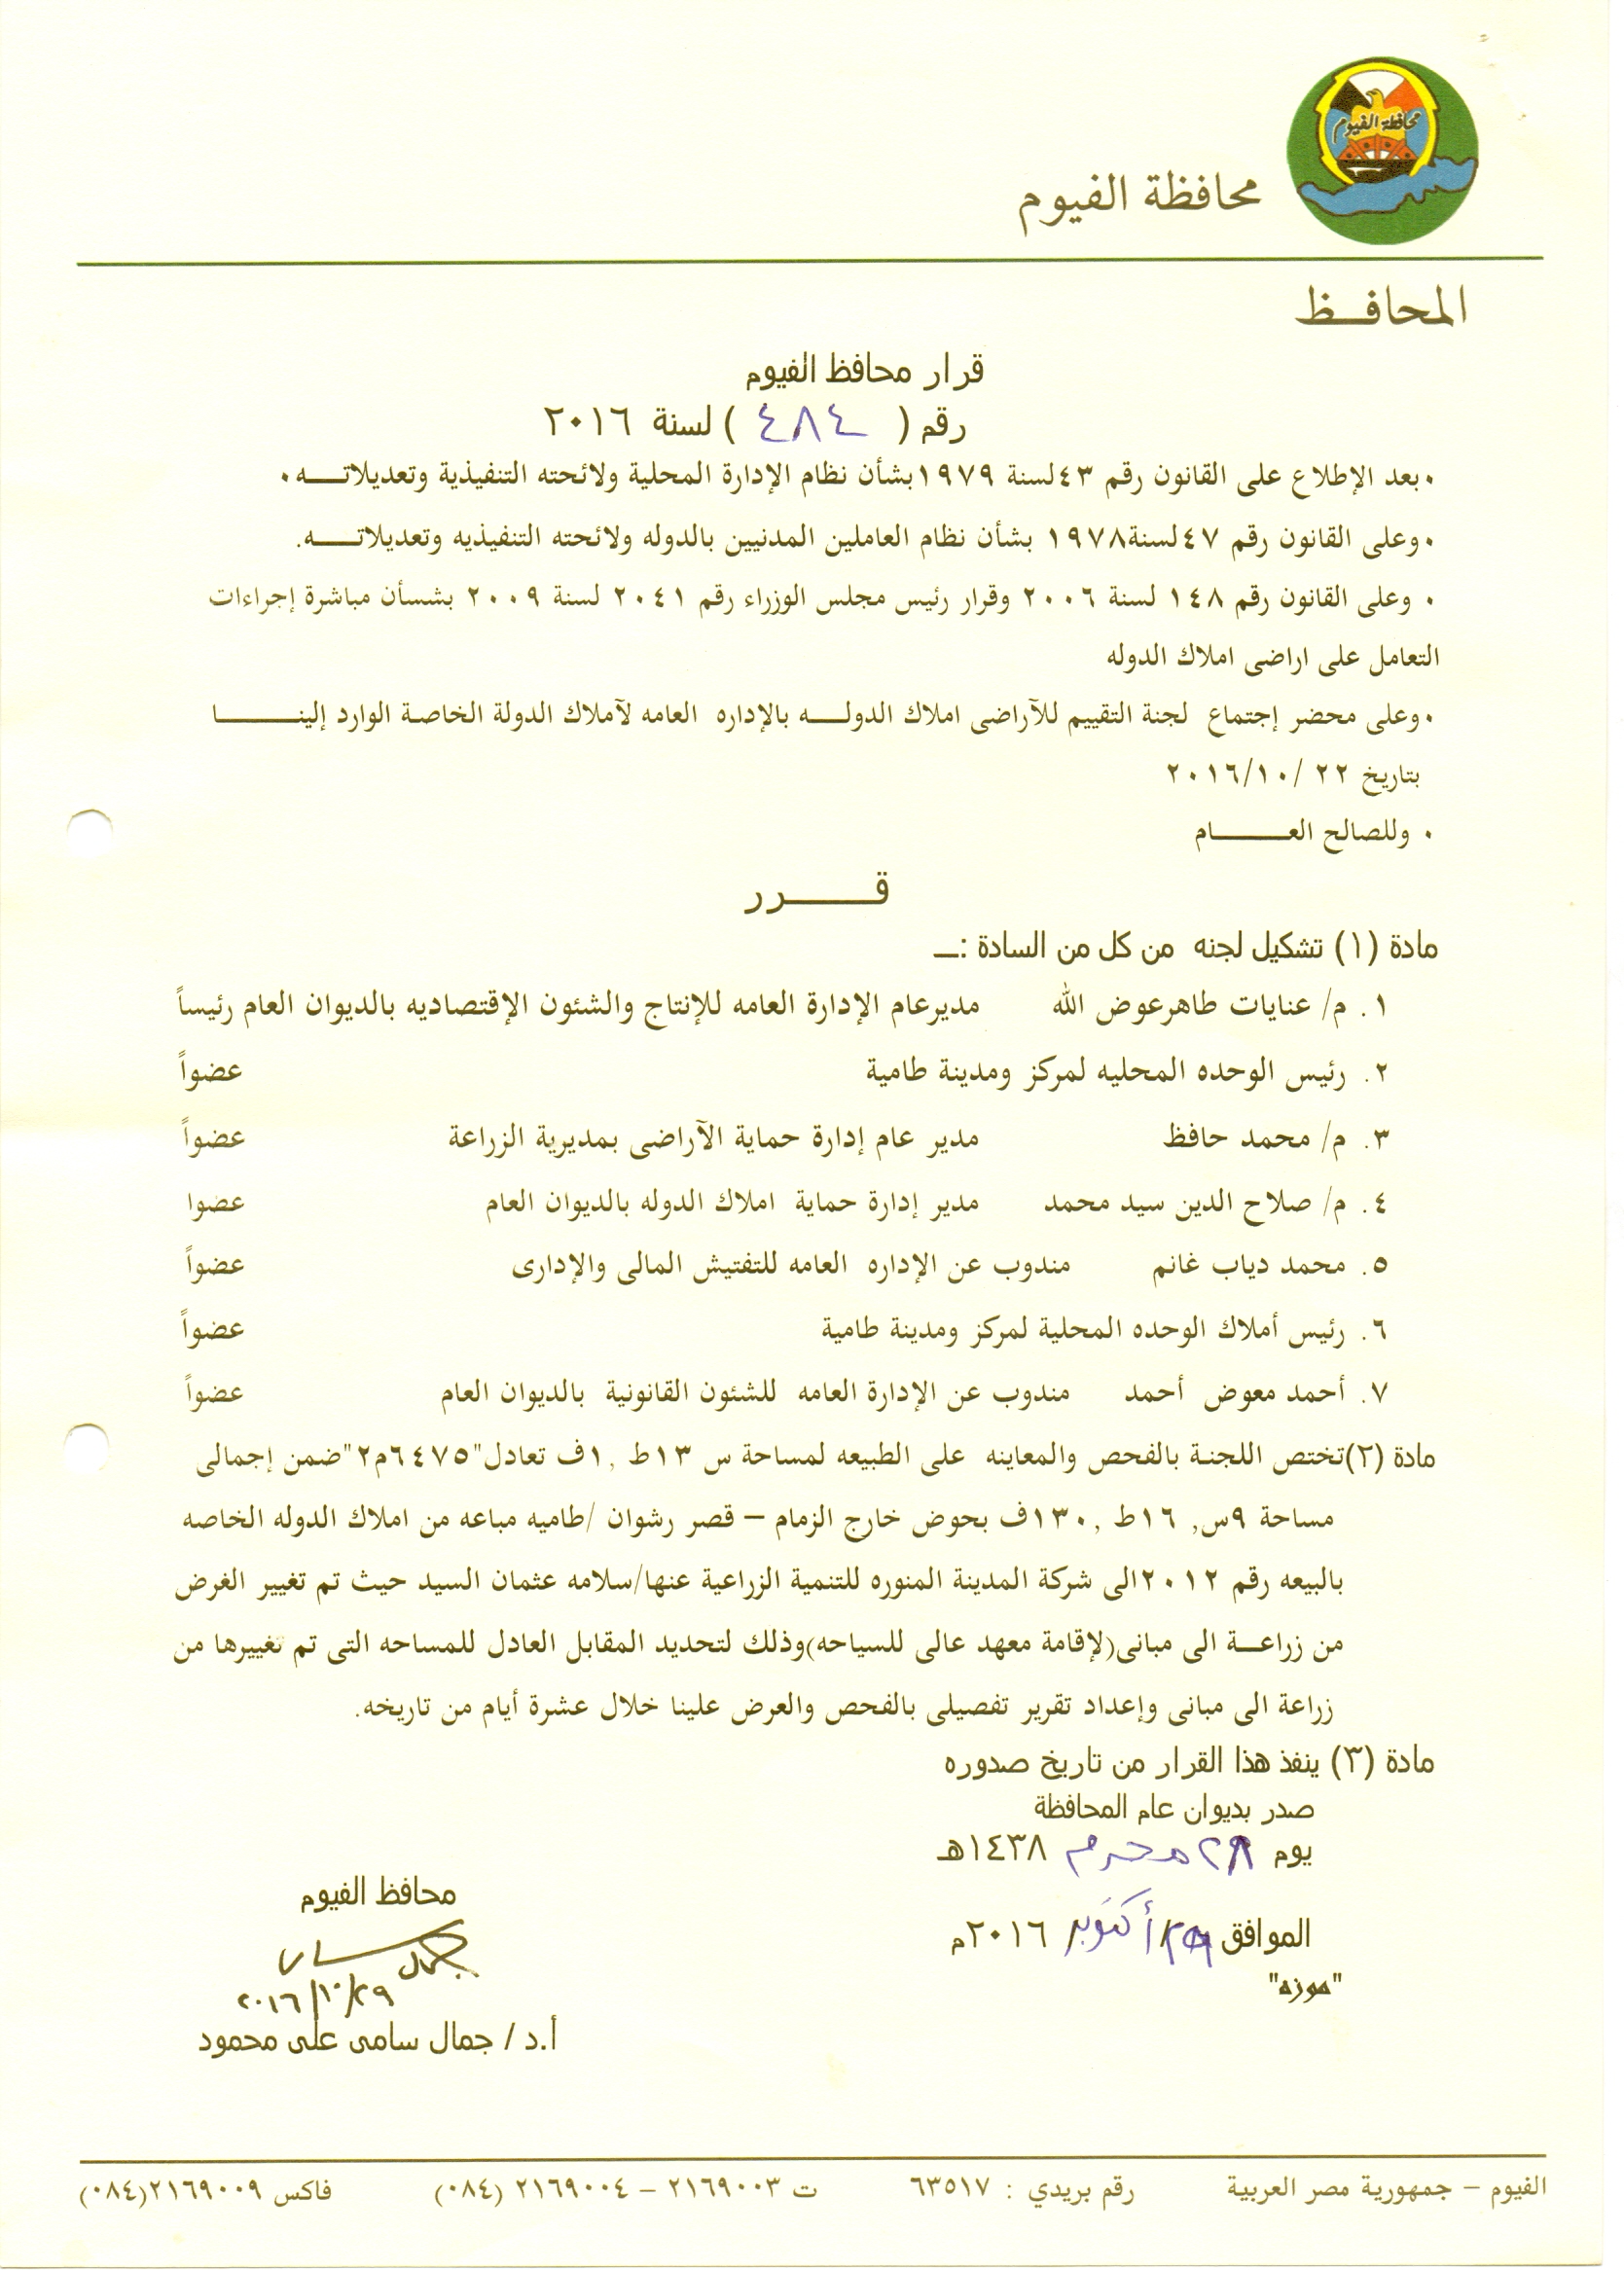 محافظة الفيوم
محافظة الفيوم
المحافــظ
قرار محافظ الفيوم
رقم ( ٤٨٤ ) لسنة ٢٠١٦
٠ بعد الإطلاع على القانون رقم ٤٣ لسنة ١٩٧٩ بشأن نظام الإدارة المحلية ولائحته التنفيذية وتعديلاتـــه ٠
٠ وعلى القانون رقم ٤٧ لسنة ١٩٧٨ بشأن نظام العاملين المدنيين بالدوله ولائحته التنفيذيه وتعديلاتـــه.
٠ وعلى القانون رقم ١٤٨ لسنة ٢٠٠٦ وقرار رئيس مجلس الوزراء رقم ٢٠٤١ لسنة ٢٠٠٩ بشسأن مباشرة إجراءات
التعامل على اراضى املاك الدوله
٠ وعلى محضر إجتماع لجنة التقييم للآراضى املاك الدولــه بالإداره العامه لآملاك الدولة الخاصة الوارد إلينــــا
بتاريخ ٢٢ /٢٠١٦/١٠
٠ وللصالح العـــــام
قـــــرر
مادة (١) تشكيل لجنه من كل من السادة :ــ
١. م/ عنايات طاهرعوض الله مديرعام الإدارة العامه للإنتاج والشئون الإقتصاديه بالديوان العام رئيساً
٢. رئيس الوحده المحليه لمركز ومدينة طامية عضواً
٣. م/ محمد حافظ مدير عام إدارة حماية الآراضى بمديرية الزراعة عضواً
٤. م/ صلاح الدين سيد محمد مدير إدارة حماية املاك الدوله بالديوان العام عضوا
٥. محمد دياب غانم مندوب عن الإداره العامه للتفتيش المالى والإدارى عضواً
٦. رئيس أملاك الوحده المحلية لمركز ومدينة طامية عضواً
٧. أحمد معوض أحمد مندوب عن الإدارة العامه للشئون القانونية بالديوان العام عضواً
مادة (٢)تختص اللجنة بالفحص والمعاينه على الطبيعه لمساحة س ١٣ط ,١ف تعادل"٦٤٧٥م٢"ضمن إجمالى
مساحة ٩س, ١٦ط ,١٣٠ف بحوض خارج الزمام – قصر رشوان /طاميه مباعه من املاك الدوله الخاصه
بالبيعه رقم ٢٠١٢الى شركة المدينة المنوره للتنمية الزراعية عنها/سلامه عثمان السيد حيث تم تغيير الغرض
من زراعــة الى مبانى(لإقامة معهد عالى للسياحه)وذلك لتحديد المقابل العادل للمساحه التى تم تغييرها من
زراعة الى مبانى وإعداد تقرير تفصيلى بالفحص والعرض علينا خلال عشرة أيام من تاريخه.
مادة (٣) ينفذ هذا القرار من تاريخ صدوره
صدر بديوان عام المحافظة
يوم ٢٨ محرم ١٤٣٨هـ
الموافق ٢٩/ أكتوبر ٢٠١٦م
"موزه"
محافظ الفيوم
٢٠١٦/١٠/٢٩
أ.د / جمال سامى على محمود
الفيوم – جمهورية مصر العربية رقم بريدي : ٦٣٥١٧ ت ٢١٦٩٠٠٣ – ٢١٦٩٠٠٤ (٠٨٤) فاكس ٢١٦٩٠٠٩(٠٨٤)